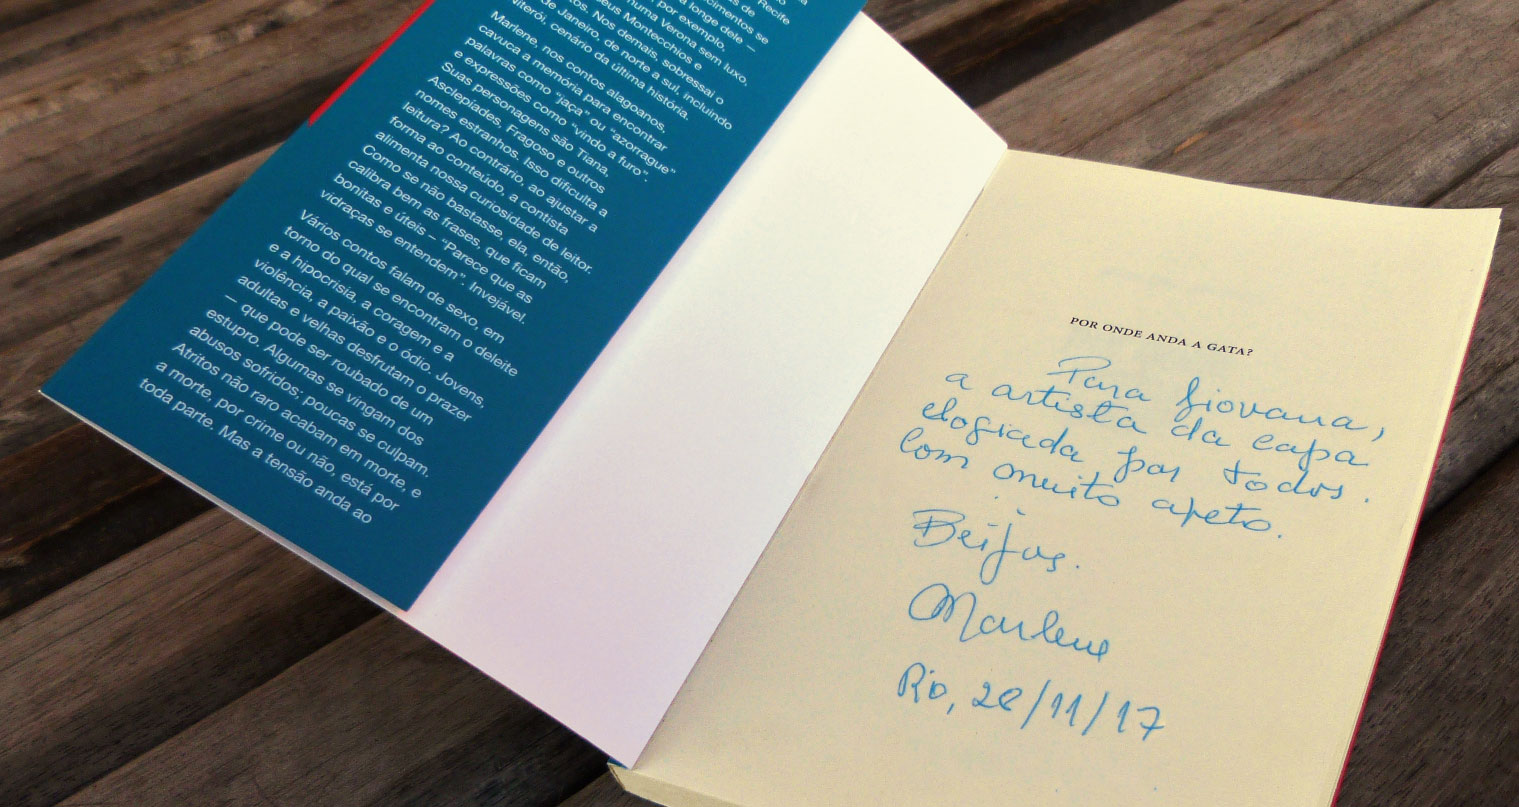 Recife
cimentos se
a longe dele –
por exemplo,
numa Verona sem luxo,
eus Montecchios e
tos. Nos demais, sobressai o
de Janeiro, de norte a sul, incluindo
Niterói, cenário da última história.
Marlene, nos contos alagoanos,
cavuca a memória para encontrar
palavras como "jaça" ou "azorrague"
e expressões como "vindo a furo".
Suas personagens são Tiana,
Asclepíades, Fragoso e outros
nomes estranhos. Isso dificulta a
leitura? Ao contrário, ao ajustar a
forma ao conteúdo, a contista
alimenta nossa curiosidade de leitor.
Como se não bastasse, ela, então,
calibra bem as frases, que ficam
bonitas e úteis – "Parece que as
vidraças se entendem". Invejável.
Vários contos falam de sexo, em
torno do qual se encontram o deleite
e a hipocrisia, a coragem e a
violência, a paixão e o ódio. Jovens,
adultas e velhas desfrutam o prazer
— que pode ser roubado de um
estupro. Algumas se vingam dos
abusos sofridos; poucas se culpam.
Atritos não raro acabam em morte, e
a morte, por crime ou não, está por
toda parte. Mas a tensão anda ao
POR ONDE ANDA A GATA?
Para Giovana,
a artista da capa
elogiada por todos.
Com muito afeto.
Beijos.
Marlene
Rio, 28/11/17